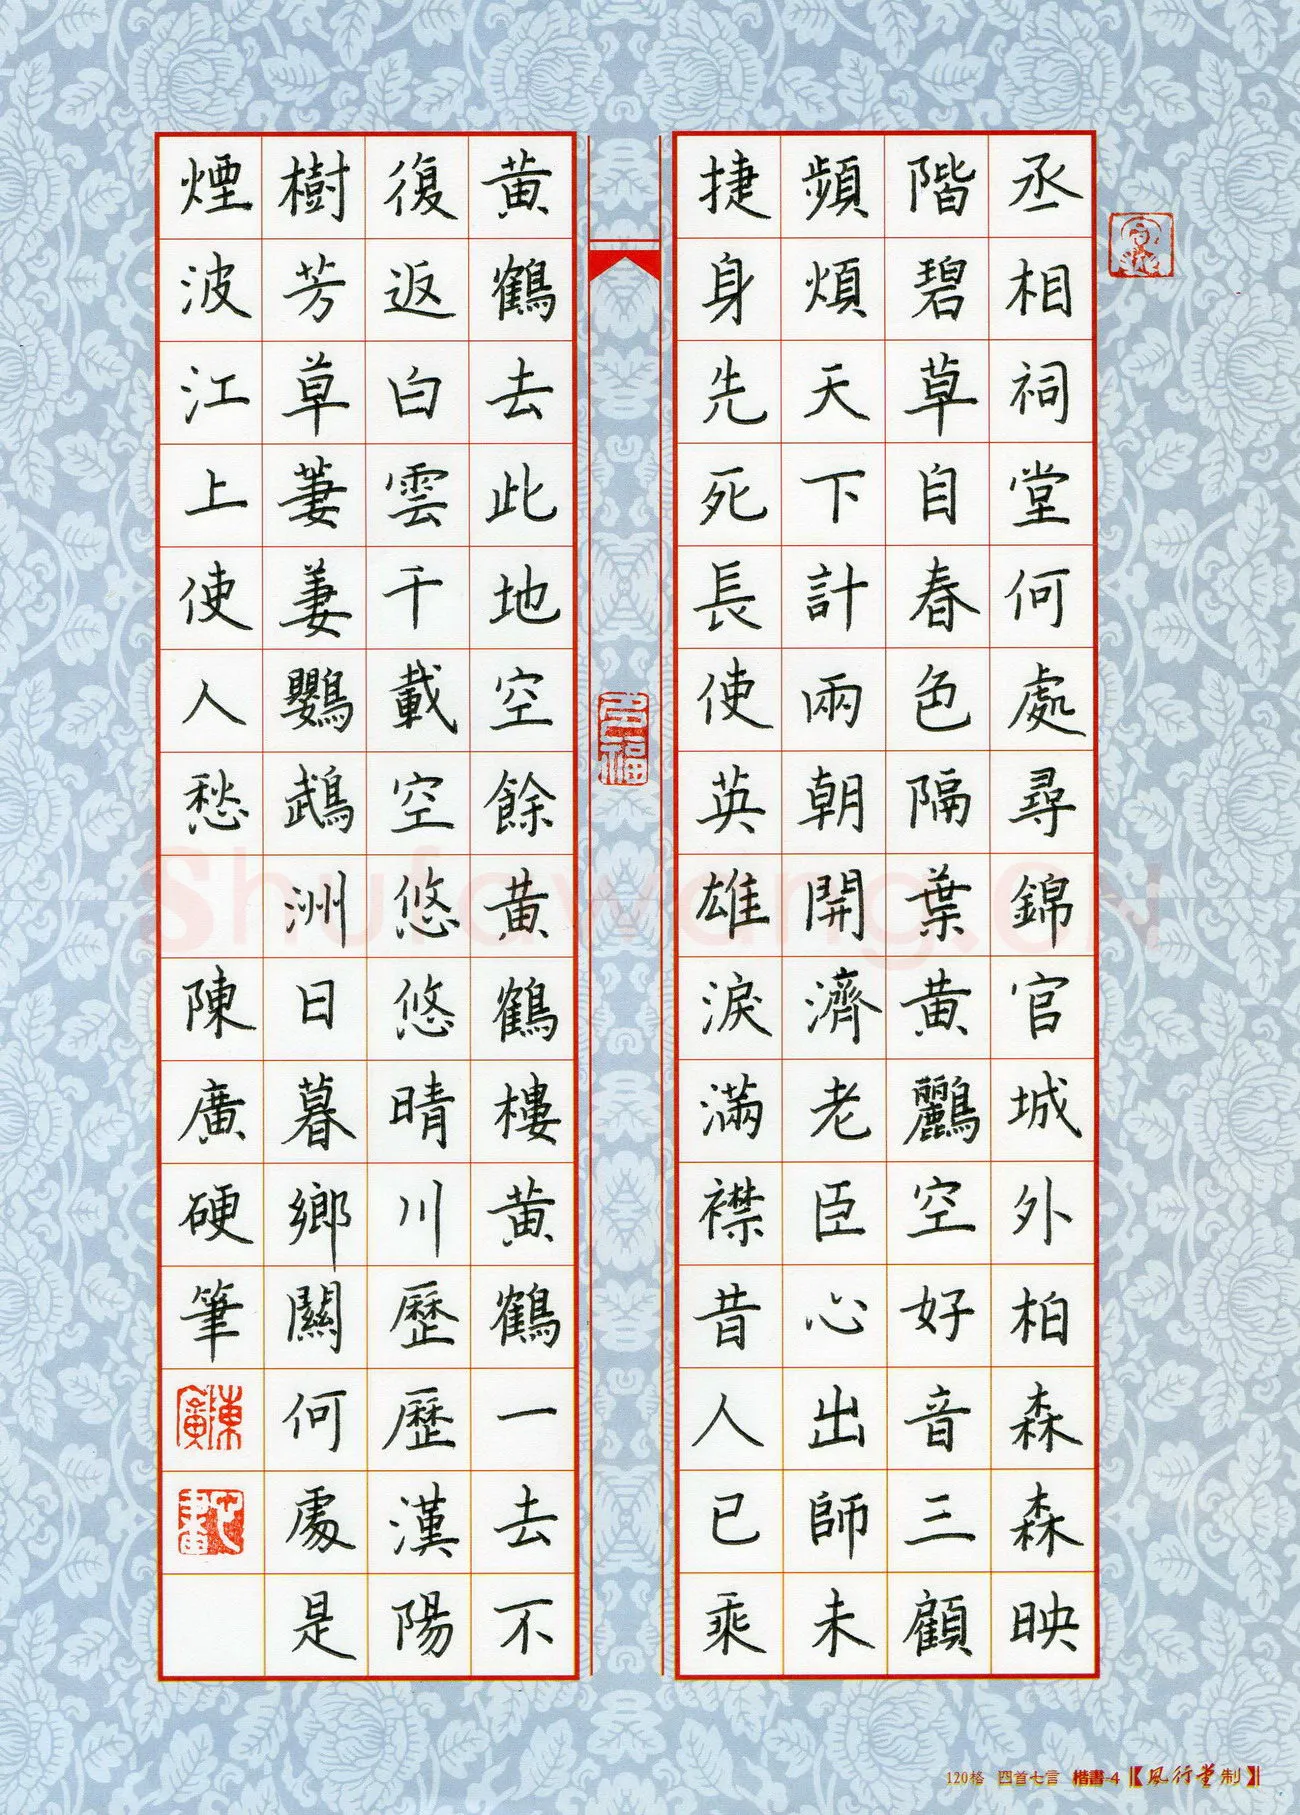 丞相祠堂何處尋錦官城外柏森森映
階碧草自春色隔葉黃鸝空好音三顧
頻煩天下計兩朝開濟老臣心出師未
捷身先死長使英雄淚滿襟昔人已乘
黃鶴去此地空餘黃鶴樓黃鶴一去不
復返白雲千載空悠悠晴川歷歷漢陽
樹芳草萋萋鸚鵡洲日暮鄉關何處是
煙波江上使人愁 陳廣硬筆
多福
陳廣
120格 四首七言 楷書-4 【風行堂制】
Shufawang.CN